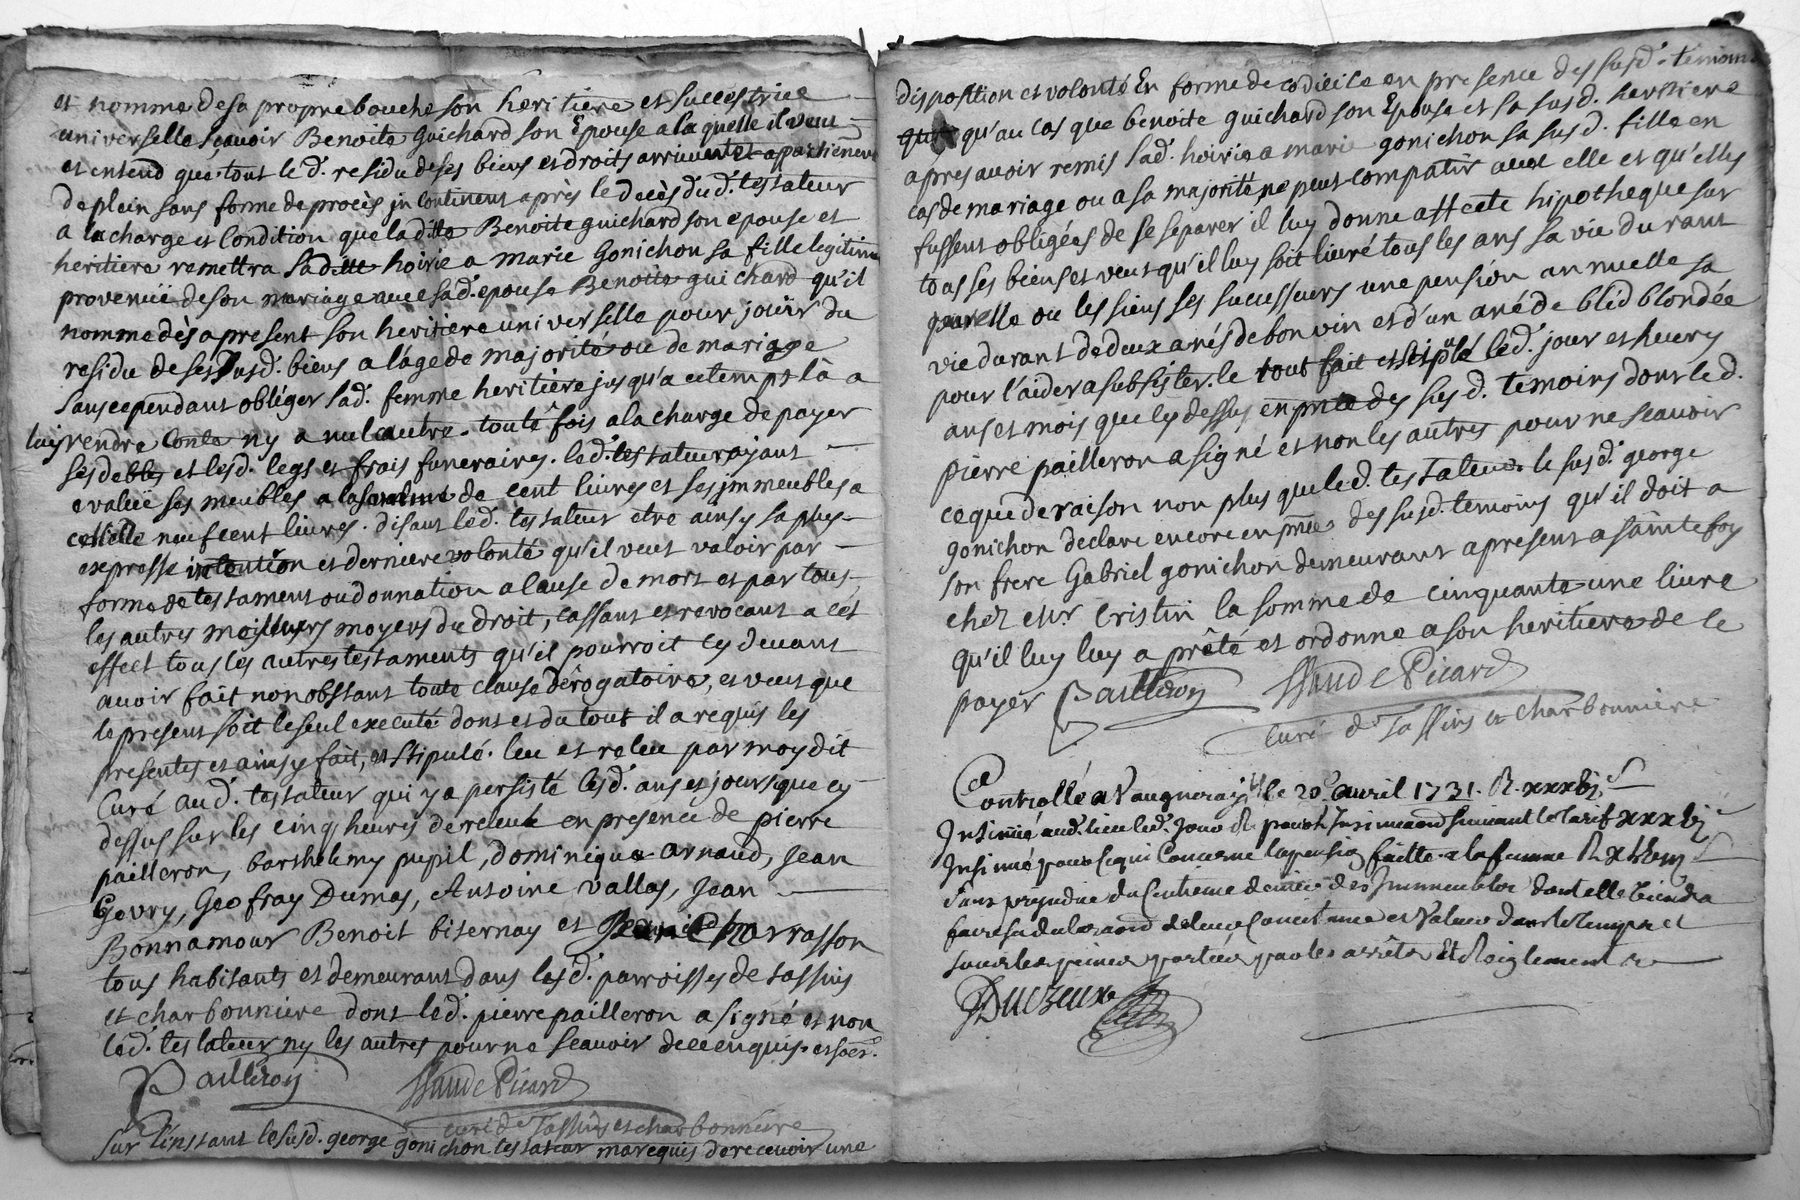 et nomme de sa propre bouche son heritiere et succestrice
universelle sçavoir Benoite Guichard son Epouse a laquelle il veut
et entend que tout le d. residu de ses biens et droits arrivent et apartienent
de plein sans forme de procès in continent après le decès du d. testateur
a la charge et Condition que la ditte Benoite guichard son epouse et
heritiere remettra sa ditte hoirie a marie Gonichon sa fille legitime
provenüe de son mariage avec sad. epouse Benoite guichard qu'il
nomme dès apresent son heritiere universelle pour joüir du
residu de ses susd. biens a lâge de majorité ou de mariage
sans cependant obliger sad. femme heritière jusqu'a ce temps là a
luy rendre Conte ny a nul autre. toute fois a la charge de payer
ses debtes et lesd. legs et frais funeraires. led. testateur ayant
evalué ses meubles a la de cent livres et ses immeubles a
celle neuf cent livres. disant led. testateur etre ainsy sa plus
expresse intention et derniere volonté qu'il veut valoir par
forme de testament ou donnation a cause de mort et par tous
les autres meilleurs moyens du droit, cassant et revocant a cet
effect tous les autres testaments qu'il pourroit cy devant
avoir fait nonobstant toute clause dérogatoire, et veut que
le present soit le seul executé dont et du tout il a requis les
presentes et ainsy fait, et stipulé. leu et releu par moy dit
Curé aud. testateur qui y a persisté lesd. ans et jours que cy
dessus sur les cinq heures de releveé en presence de pierre
pailleron, barthelemy pupil, dominique arnaud, jean
Gevry, Geofray Dumas, Antoine vallas, jean
Bonnamour Benoit bisernay et
tous habitants et demeurant dans lesd. parroisses de tassins
et charbonniere dont led. pierre pailleron a signé et non
led. testateur ny les autres pour ne sçavoir de ce enquis et
Pailleron Picard
curé de Tassins et charbonniere
sur l'instant le susd. george gonichon testateur ma requis de recevoir une
disposition et volonté En forme de codicile en presence des susd. temoins
qu'au cas que benoite guichard son Epouse et sa susd. heritiere
apres avoir remis sad. hoirie a marie gonichon sa susd. fille en
cas de mariage ou a sa majorité, ne peut compatir avec elle et qu'elles
fussent obligées de se separer il luy donne affecte hipotheque sur
tous ses biens et veut qu'il luy soit livré tous les ans sa vie durant
par elle ou les siens ses successeurs une pension annuelle sa
vie durant de deux anés de bon vin et d'un ané de bled blondée
pour l'aider a subsister. le tout fait et stipulé led. jour et heures
ans et mois que cy dessus en pnce des susd. temoins dont led.
pierre pailleron a signé et non les autres pour ne sçavoir
ce que de raison non plus que led. testateur le susd. george
gonichon declare encore en pnce des susd. temoins qu'il doit a
son frere Gabriel gonichon demeurant apresent a sainte foy
chez Mr. Cristin la somme de cinquante une livre
qu'il luy luy a prêté et ordonne a son heritiere de le
payer Pailleron Picard
curé de Tassins et charbonniere
Controllé a Vaugneray le 20e avril 1731. R. xxxvj s
Insinué aud. lieu led. Jour R. pour suivant le tarif xxxvj s
Insinué pour ce qui Concerne la pension faitte a la femme R
sans prejudice du Centieme denier des Immeubles dont elle tiendra
faire sa declaraõn de leur Consistance et Valeur dans le temps et
sous les peines portées par les arrêts Et Reiglements